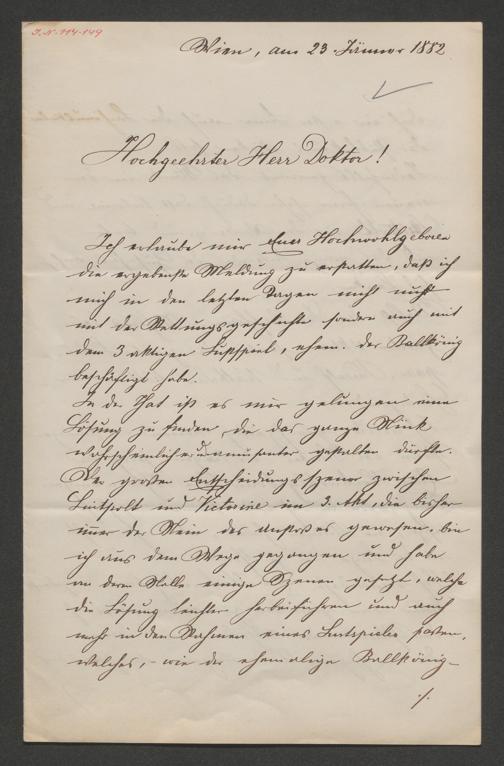 J.N. 114.149
Wien, am 23. Jänner 1882
Hochgeehrter Herr Doktor!
Ich erlaube mir Euer Hochwohlgeboren
die ergebenste Meldung zu erstatten, daß ich
mich in den letzten Tagen nicht nur
mit der Rettungsgeschichte sondern auch mit
dem 3 aktigen Lustspiel, ehem. der Ballkönig
beschäftigt habe.
In der That ist es mir gelungen eine
Lösung zu finden, die das ganze Stück
wahrscheinlicher u. amusanter gestalten dürfte.
Der großen Entscheidungsszene zwischen
Luitpolt und Victorine im 3. Akt, die bisher
immer der Stein des Anstoßes gewesen, bin
ich aus dem Wege gegangen und habe
an deren Stelle einige Szenen gesetzt, welche
die Lösung leichter herbeiführen und auch
mehr in den Rahmen eines Lustspieles passen,
welches, – wie der ehemalige Ballkönig –
./.